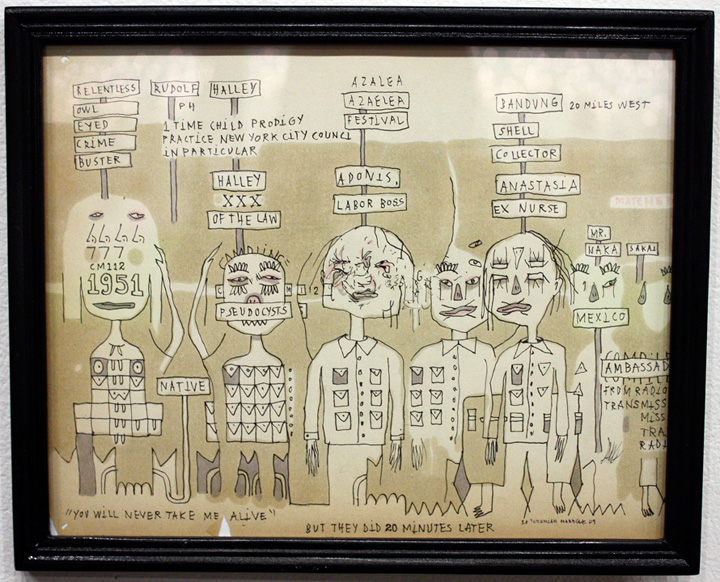 RELENTLESS
OWL
EYED
CRIME
BUSTER
RUDOLF
P4
HALLEY
1 TIME CHILD PRODIGY
PRACTICE NEW YORK CITY COUNCI
IN PARTICULAR
HALLEY
XXX
OF THE LAW
AZALEA
AZAELEA
FESTIVAL
ADONIS,
LABOR BOSS
BANDUNG
20 MILES WEST
SHELL
COLLECTOR
ANASTASIA
EX NURSE
MR.
NAKA
SAKAI
MEXICO
AMBASSAD
FROM RADIO
TRANSMISS
MISS
TRA
RAD
777
CM112
1951
PSEUDOCYSTS
NATIVE
"YOU WILL NEVER TAKE ME ALIVE"
BUT THEY DID 20 MINUTES LATER